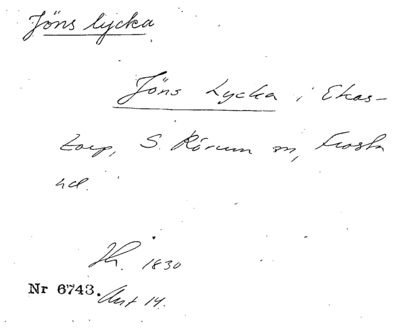 Jöns lycka
Jöns Lycka i Ekas-
torp, S. Rörum sn, Frosta
hd.
Hr. 1830
Nr 6743. Ant 14.